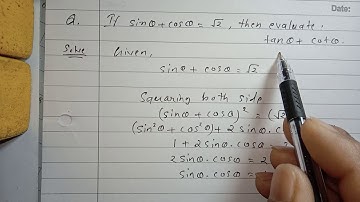 Date:
Q. If sinθ + cosθ = √2, then evaluate.
tanθ + cotθ.
Solve Given,
sinθ + cosθ = √2
Squaring both side
(sinθ + cosθ)² = (√2
(sin²θ + cos²θ) + 2 sinθ.
1 + 2sinθ.cosθ =
2sinθ.cosθ = 2
sinθ.cosθ =